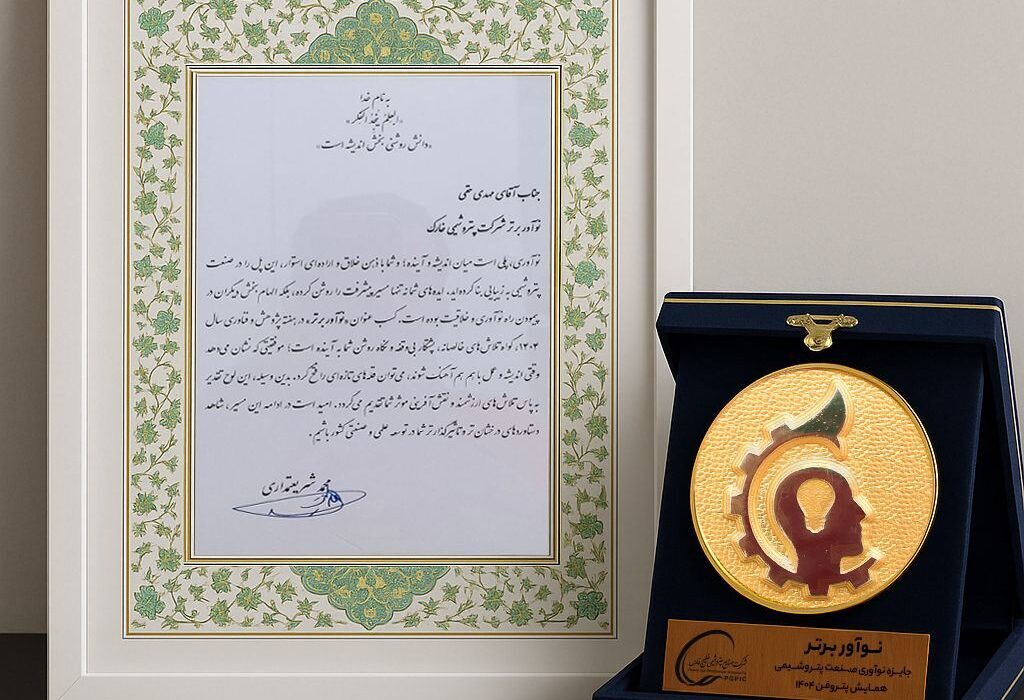 به نام خدا
«العلم ینجد الفکر»
«دانش روشنی بخش اندیشه است»
جناب آقای مهدی حقی
نوآور برتر شرکت پتروشیمی خارک
نوآوری، پلی است میان اندیشه و آینده؛ و شما با ذهن خلاق و اراده‌ای استوار، این پل را در صنعت
پتروشیمی به زیبایی بنا کرده‌اید. ایده‌های شما نه تنها مسیر پیشرفت را روشن کرده، بلکه الهام بخش دیگران در
پیمودن راه نوآوری و خلاقیت بوده است. کسب عنوان «نوآور برتر» در هفته پژوهش و فناوری سال
۱۴۰۴، گواه تلاش‌های خالصانه، پشتکار بی‌وقفه و نگاه روشن شما به آینده است؛ موفقیتی که نشان می‌دهد
وقتی اندیشه و عمل با هم هم آهنگ شوند، می‌توان قله‌های تازه‌ای را فتح کرد. بدین وسیله، این لوح تقدیر
به پاس تلاش‌های ارزشمند و نقش آفرینی موثر شما تقدیم می‌گردد. امید است در ادامه این مسیر، شاهد
دستاوردهای درخشان تر و تاثیرگذارتر شما در توسعه علمی و صنعتی کشور باشیم.
محمد شریعتمداری
نوآور برتر
جایزه نوآوری صنعت پتروشیمی
همایش پتروفن ۱۴۰۴
شرکت صنایع پتروشیمی خلیج فارس
PGPIC